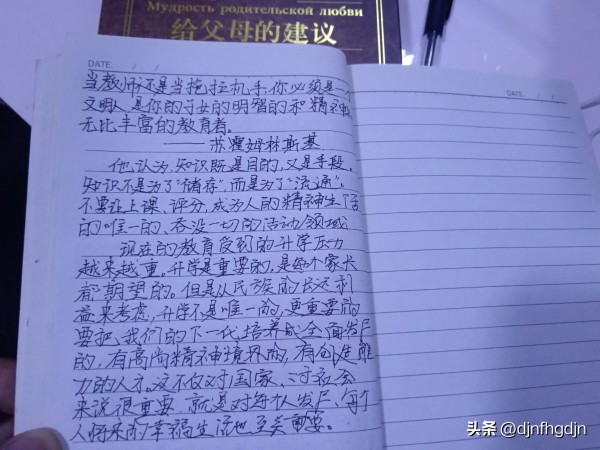 Мудрость родительской любви
给父母的建议
DATE. / /
DATE. / /
当教师还是当拖拉机手,你必须是一个
文明人 是你的子女的明智的和精神
无比丰富的教育者。
——苏霍姆林斯基
他认为,知识既是目的,又是手段。
知识不是为了“储存”,而是为了“流通”。
不要让上课、评分,成为人的精神生活
的唯一的、吞没一切的活动领域
现在的教育受到的升学压力
越来越重。升学是重要的,是每个家长
都期望的。但是从民族的长远利
益来考虑,升学不是唯一的,更重要的
要把我们的下一代培养成全面发展
的,有高尚精神境界的,有创造能
力的人才。这不仅对国家、对社会
来说很重要 就是对每个人发展、每个
人将来的幸福生活也至关重要。
头条 @djnfhgdjn